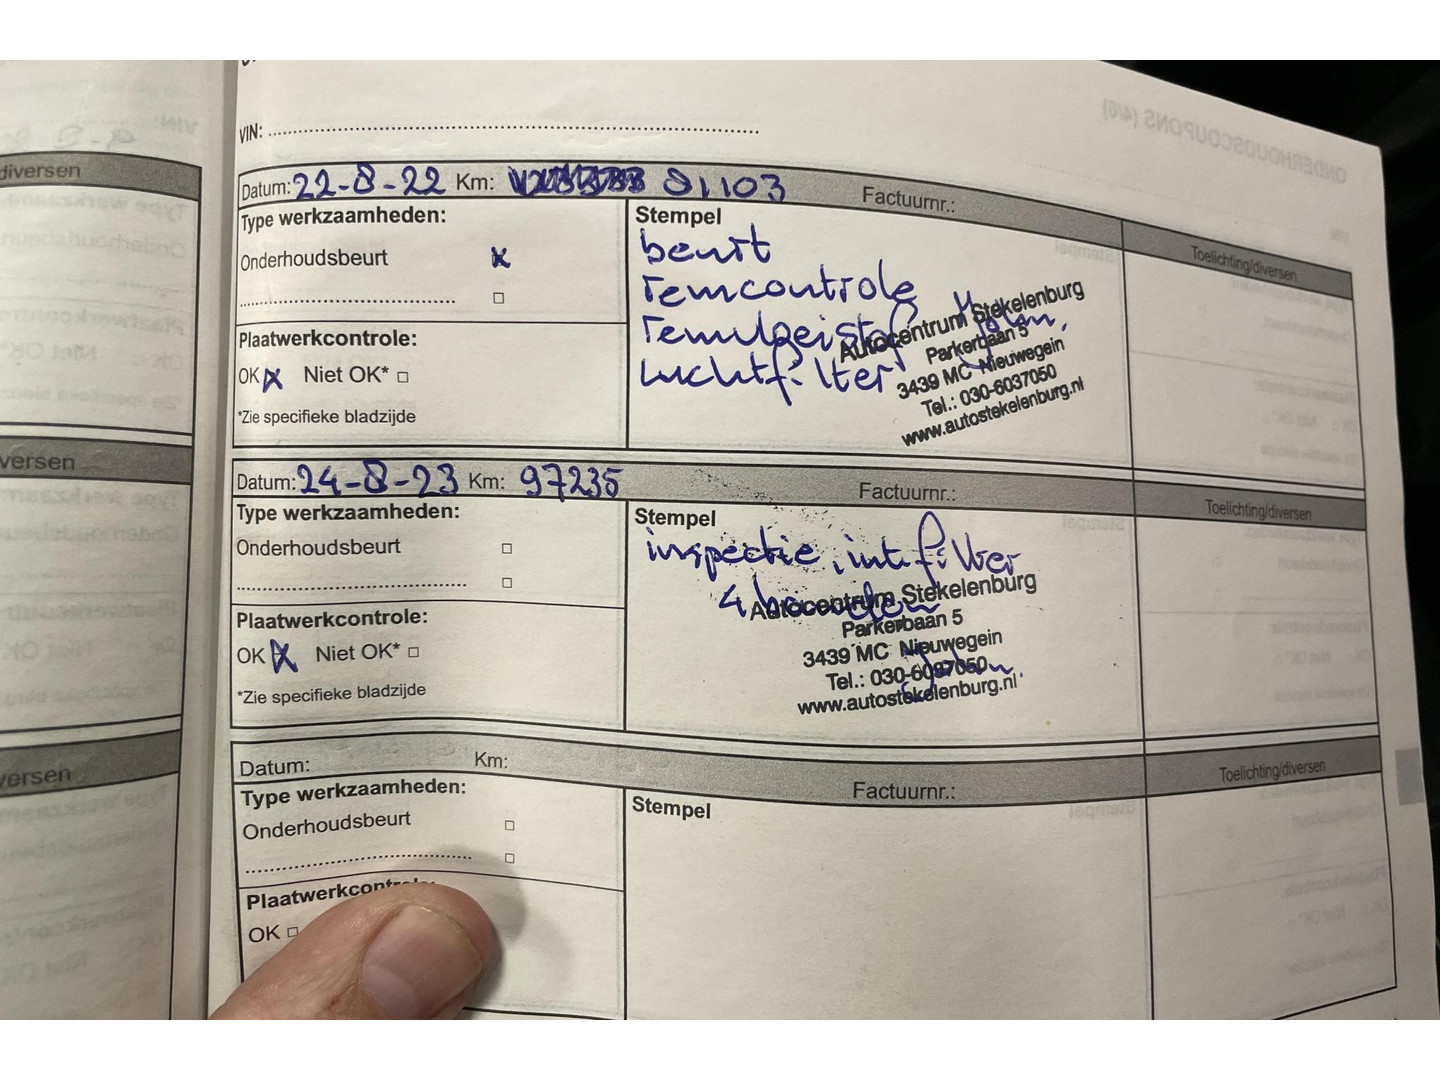 VIN:
Datum: 22-8-22 Km: 81103 Factuurnr.:
Type werkzaamheden:
Onderhoudsbeurt
Plaatwerkcontrole:
OK Niet OK*
*Zie specifieke bladzijde
Stempel
beurt
remcontrole
luchtfilter
Autocentrum Stekelenburg
Parkerbaan 5
3439 MC Nieuwegein
Tel.: 030-6037050
www.autostekelenburg.nl
Toelichting/diversen
Datum: 24-8-23 Km: 97235 Factuurnr.:
Type werkzaamheden:
Onderhoudsbeurt
Plaatwerkcontrole:
OK Niet OK*
*Zie specifieke bladzijde
Stempel
inspectie, int. filter
4 banden
Autocentrum Stekelenburg
Parkerbaan 5
3439 MC Nieuwegein
Tel.: 030-6037050
www.autostekelenburg.nl
Toelichting/diversen
Datum: Km: Factuurnr.:
Type werkzaamheden:
Onderhoudsbeurt
Plaatwerkcontrole:
OK
Stempel
Toelichting/diversen
diversen
versen
versen
ONDERHOUDSCOUPONS (4/6)